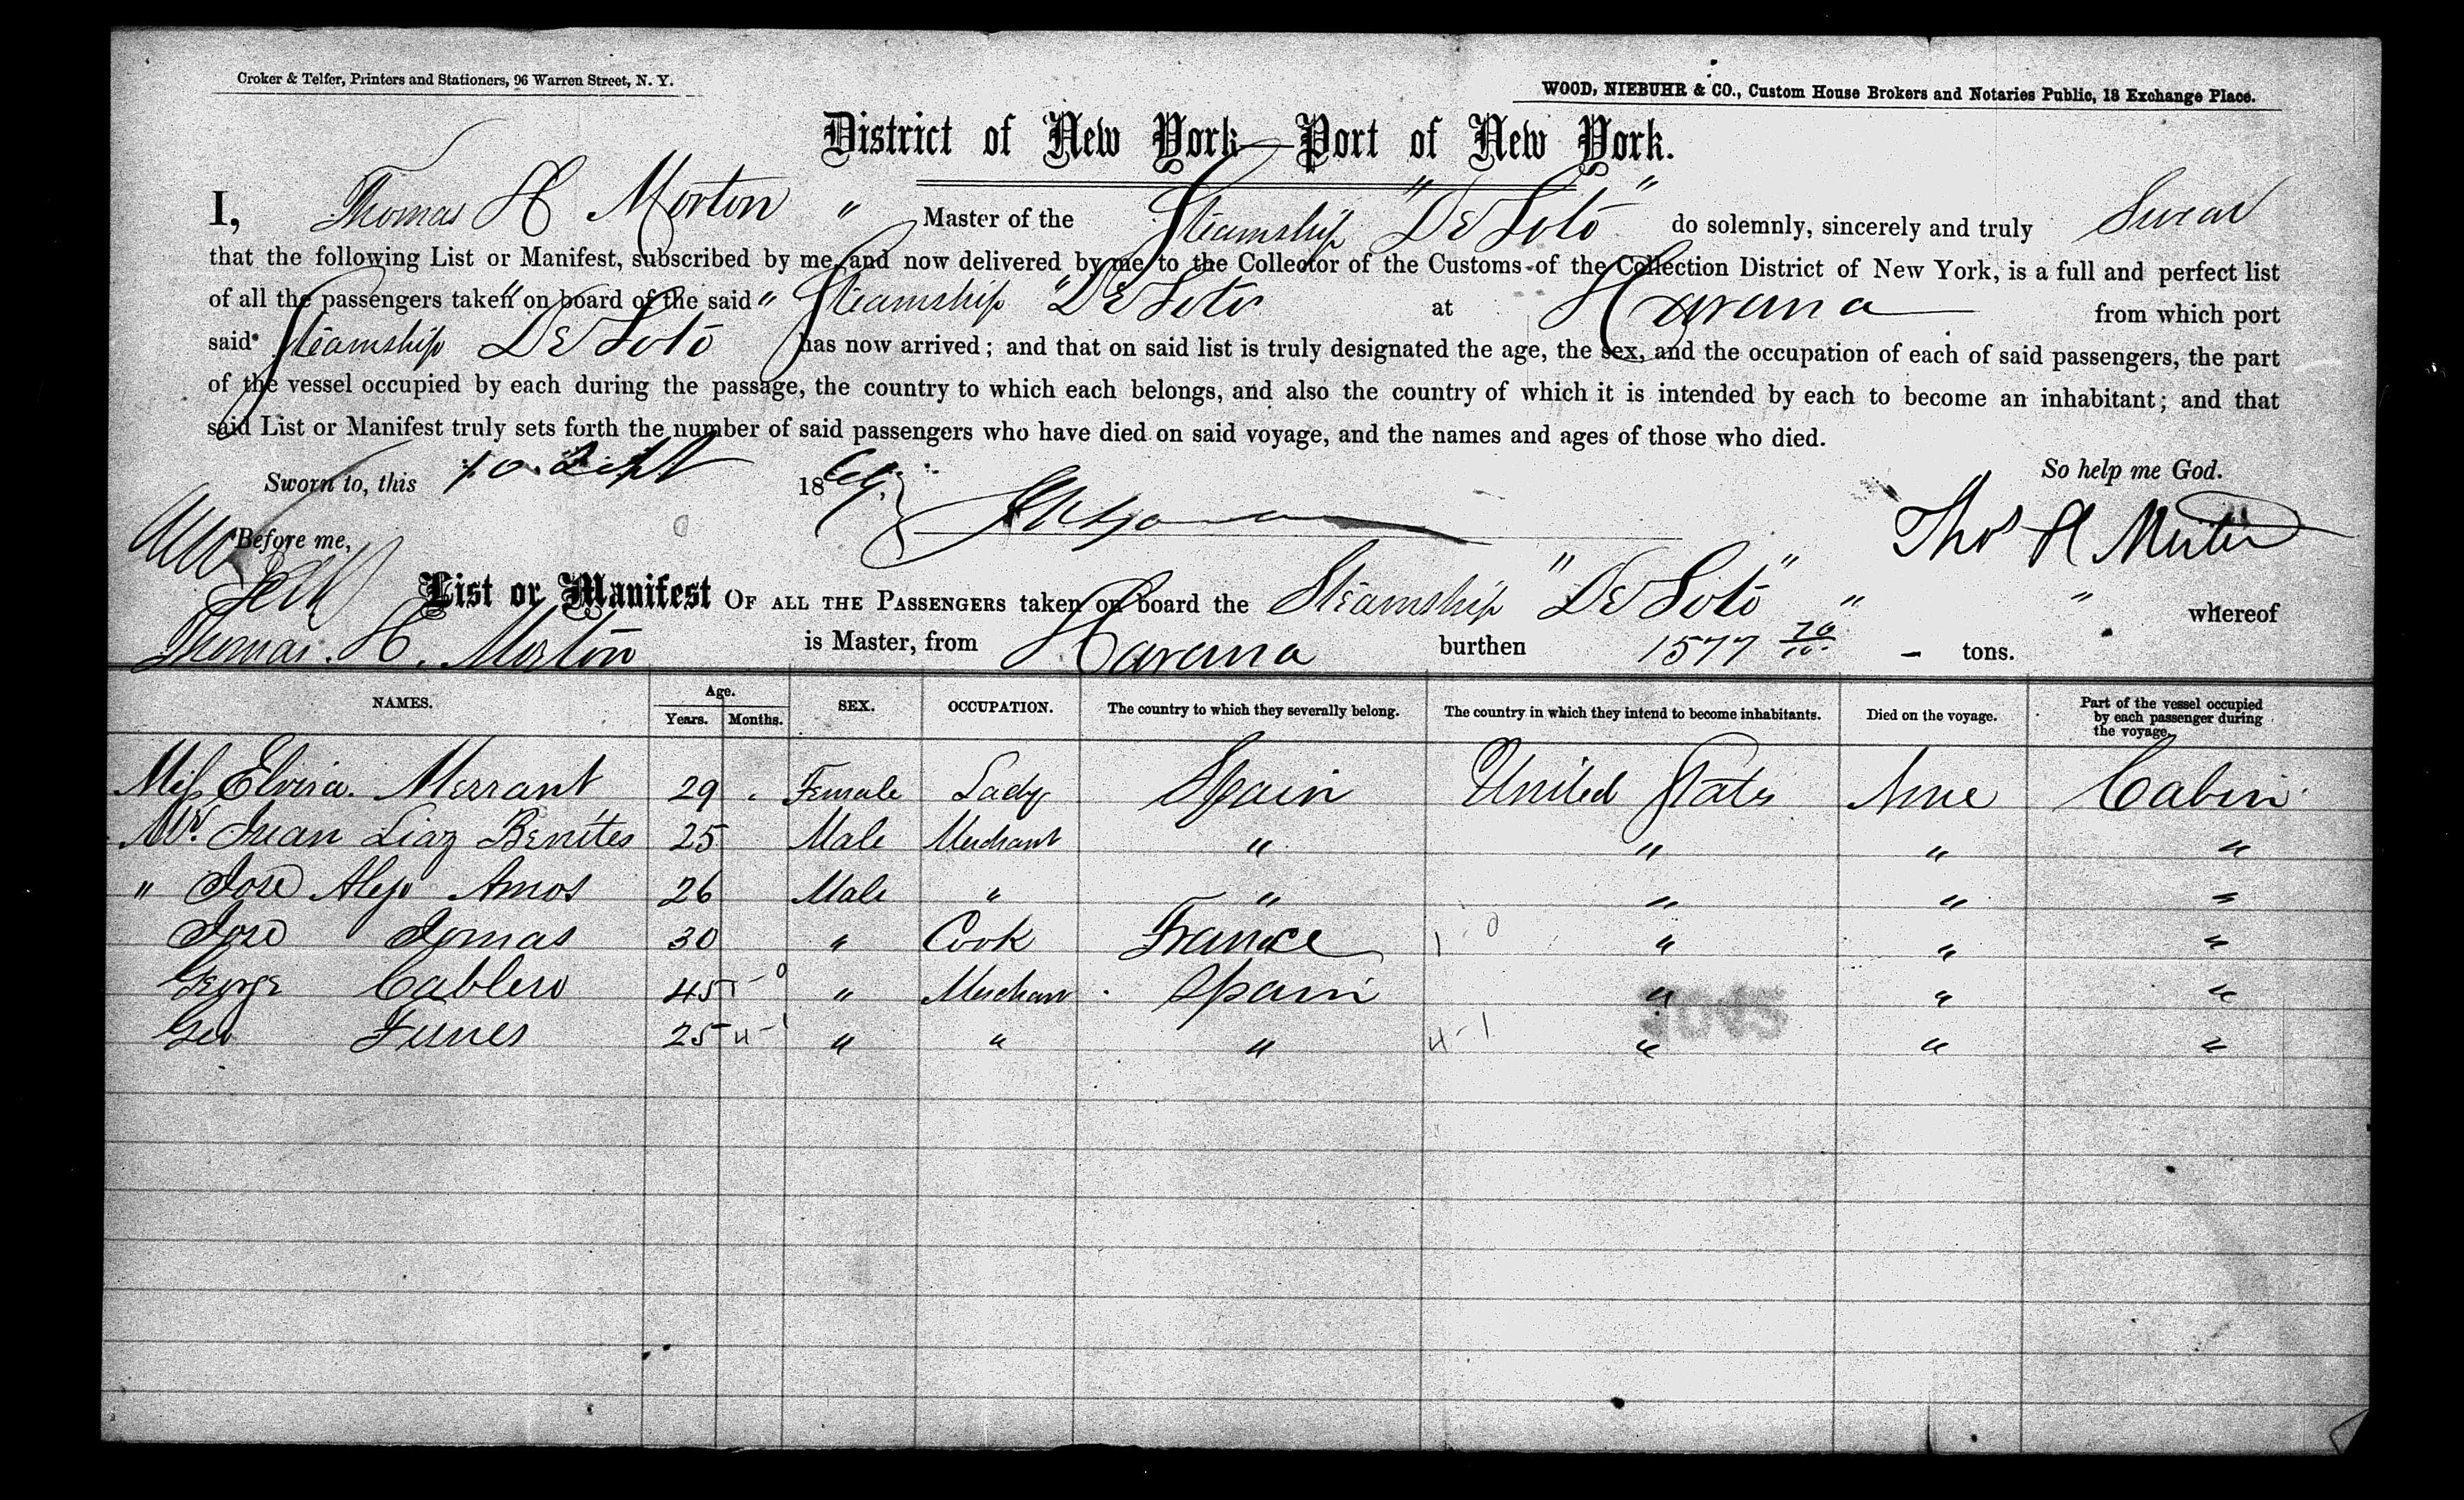 Croker & Telfer, Printers and Stationers, 96 Warren Street, N. Y.
WOOD, NIEBUHR & CO., Custom House Brokers and Notaries Public, 18 Exchange Place.
District of New York—Port of New York.
I, Thomas H Morton " Master of the Steamship "De Soto" do solemnly, sincerely and truly Swear
that the following List or Manifest, subscribed by me, and now delivered by me to the Collector of the Customs of the Collection District of New York, is a full and perfect list
of all the passengers taken on board of the said " Steamship "De Soto at Havana from which port
said Steamship "De Soto has now arrived; and that on said list is truly designated the age, the sex, and the occupation of each of said passengers, the part
of the vessel occupied by each during the passage, the country to which each belongs, and also the country of which it is intended by each to become an inhabitant; and that
said List or Manifest truly sets forth the number of said passengers who have died on said voyage, and the names and ages of those who died.
Sworn to, this 10 Sept 18
So help me God.
Before me,
Thos H Morton
List or Manifest OF ALL THE PASSENGERS taken on board the Steamship "De Soto" " " whereof
Thomas. H. Morton is Master, from Havana burthen 1577 - tons.
NAMES. Age. Years. Months. SEX. OCCUPATION. The country to which they severally belong. The country in which they intend to become inhabitants. Died on the voyage. Part of the vessel occupied by each passenger during the voyage.
Miss Elvira. Merrant 29 Female Lady Spain United States None Cabin
Mr. Juan Liaz Benites 25 Male Merchant " " " "
" Jose Alejo Amos 26 Male " " " " "
Jose Jomas 30 " Cook France 1 0 " " "
George Cablero 45 - 0 " Merchant Spain " " "
Geo Funes 25 4 - 1 " " " 4 - 1 " " "